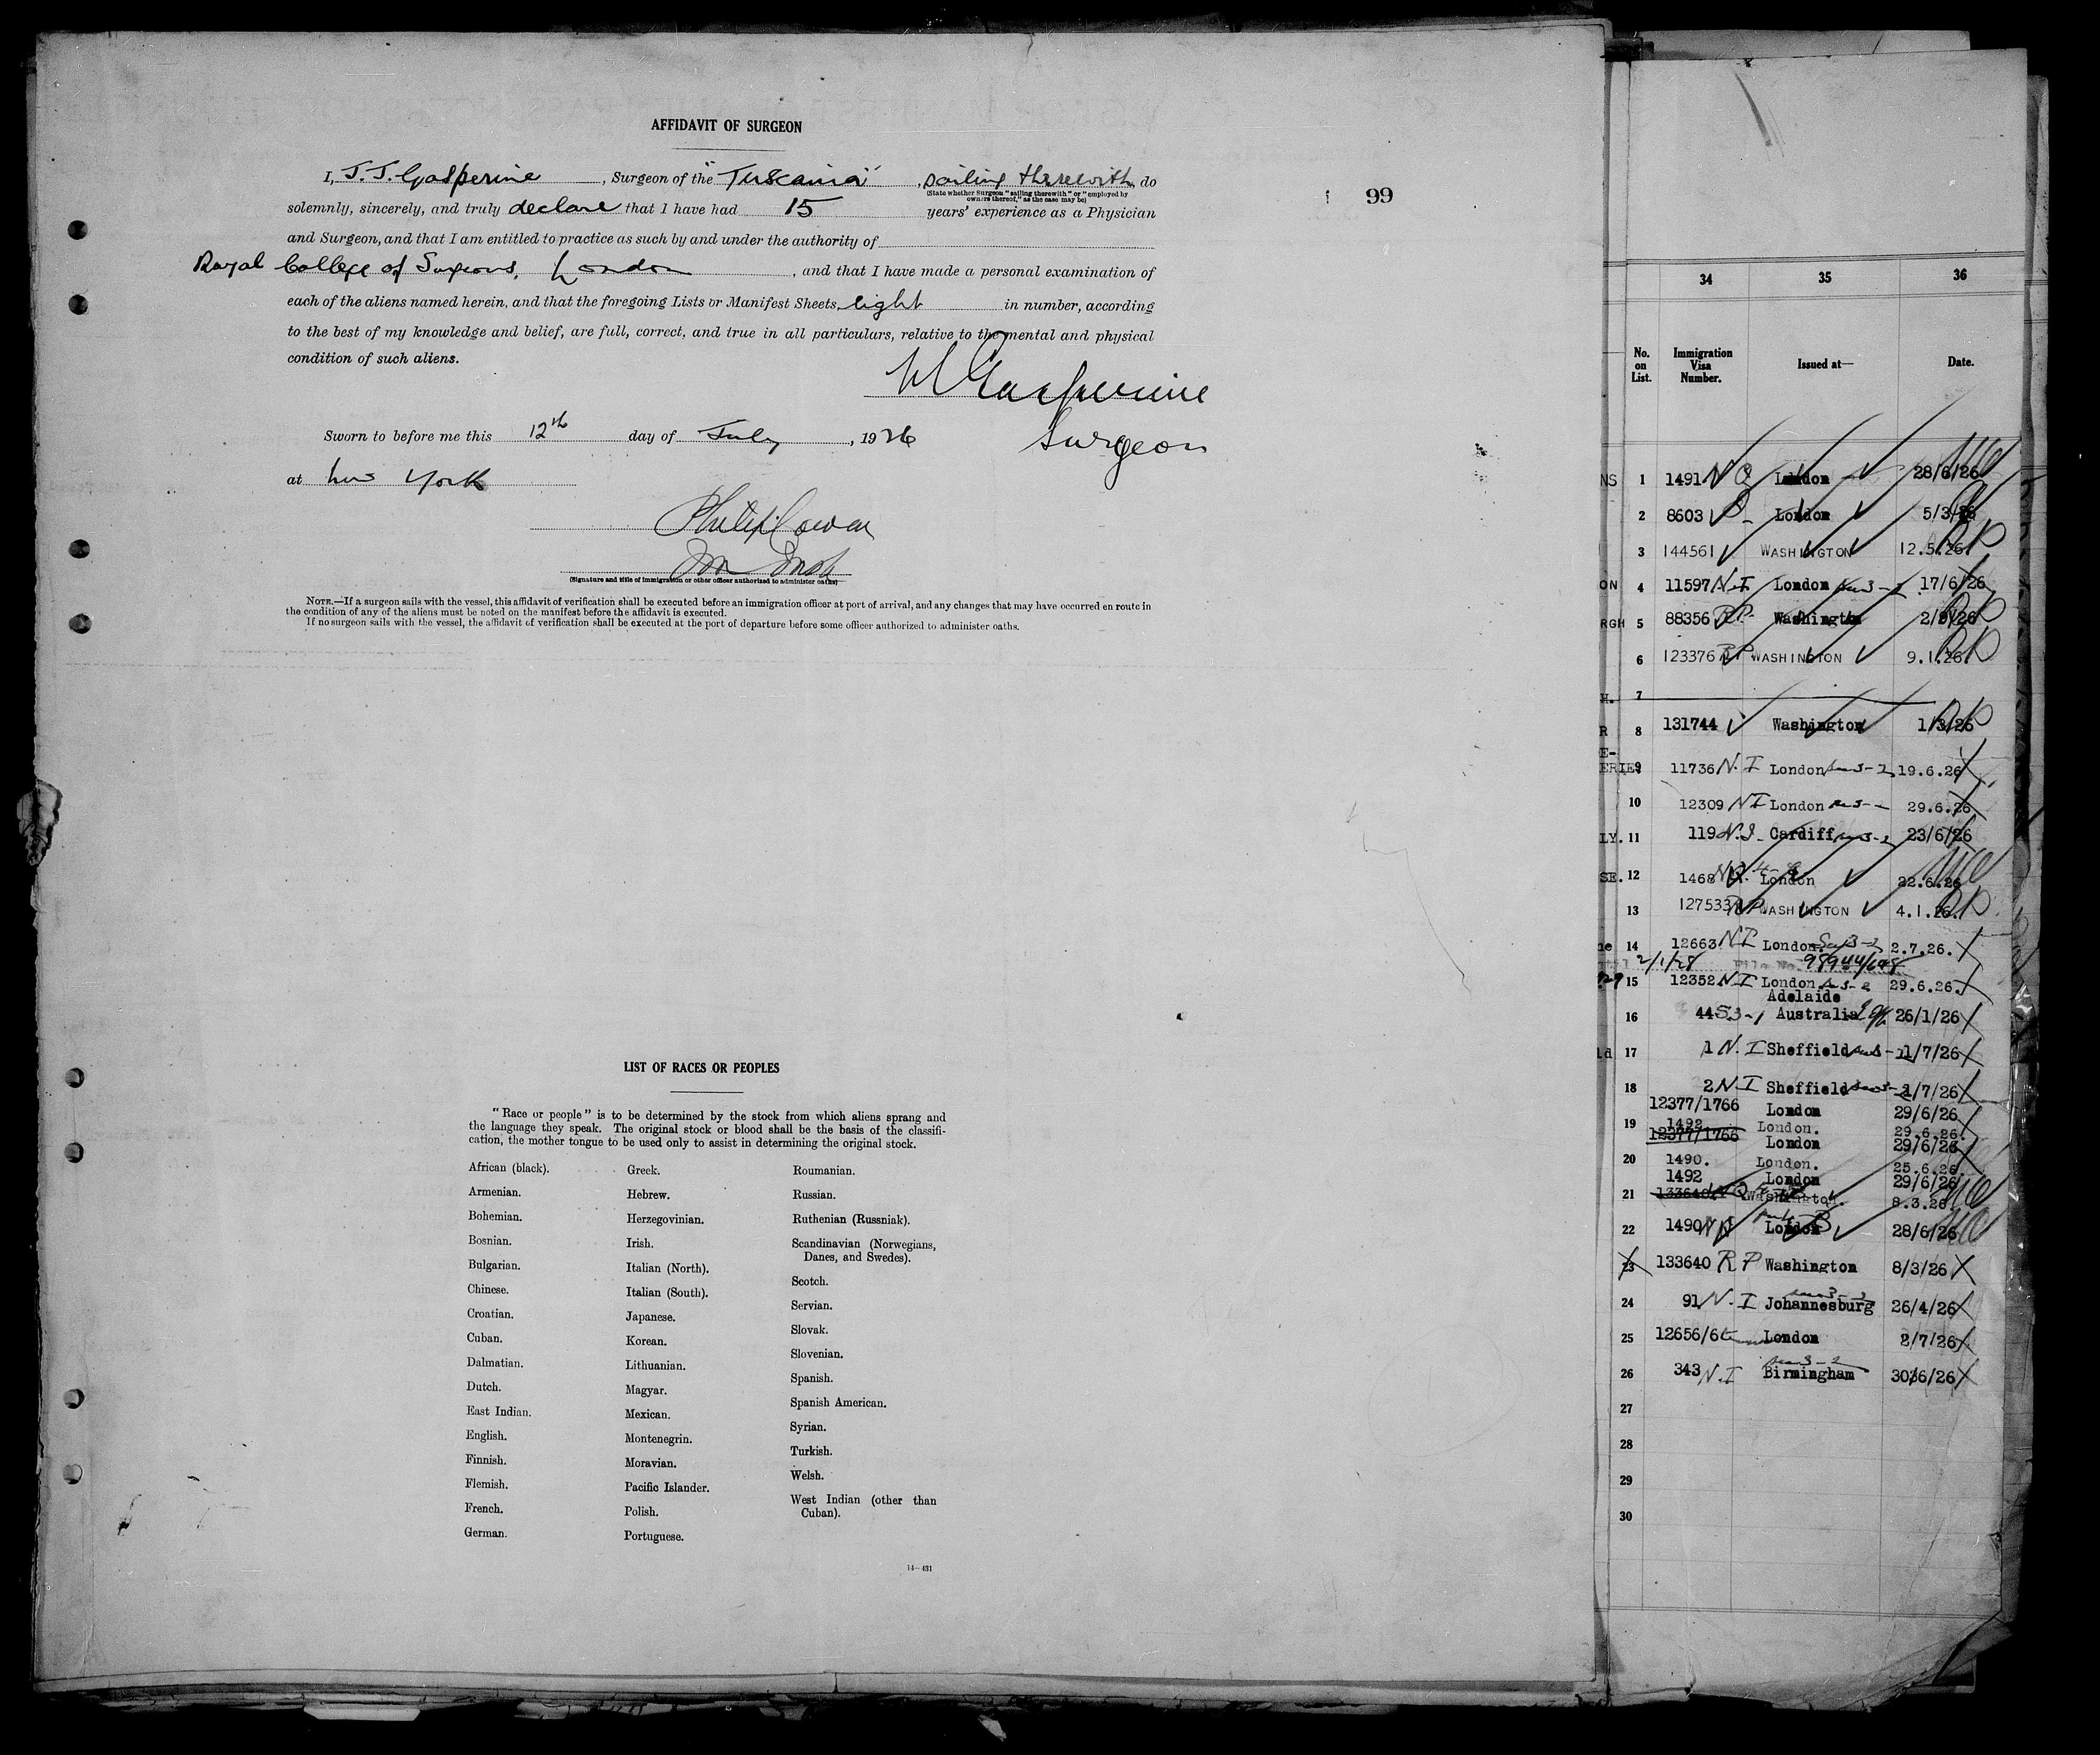 AFFIDAVIT OF SURGEON
I, J. J. Gasperine, Surgeon of the "Tuscania", sailing therewith, do
(State whether Surgeon "sailing therewith" or "employed by
owners thereof," as the case may be)
solemnly, sincerely, and truly declare that I have had 15 years' experience as a Physician
and Surgeon, and that I am entitled to practice as such by and under the authority of
Royal College of Surgeons, London, and that I have made a personal examination of
each of the aliens named herein, and that the foregoing Lists or Manifest Sheets, eight in number, according
to the best of my knowledge and belief, are full, correct, and true in all particulars, relative to the mental and physical
condition of such aliens.
Gasperine
Surgeon
Sworn to before me this 12th day of July, 1926
at New York
Philip Cowen
(Signature and title of immigration or other officer authorized to administer oaths)
NOTE.—If a surgeon sails with the vessel, this affidavit of verification shall be executed before an immigration officer at port of arrival, and any changes that may have occurred en route in
the condition of any of the aliens must be noted on the manifest before the affidavit is executed.
If no surgeon sails with the vessel, the affidavit of verification shall be executed at the port of departure before some officer authorized to administer oaths.
99
LIST OF RACES OR PEOPLES
"Race or people" is to be determined by the stock from which aliens sprang and
the language they speak. The original stock or blood shall be the basis of the classifi-
cation, the mother tongue to be used only to assist in determining the original stock.
African (black).
Armenian.
Bohemian.
Bosnian.
Bulgarian.
Chinese.
Croatian.
Cuban.
Dalmatian.
Dutch.
East Indian.
English.
Finnish.
Flemish.
French.
German.
Greek.
Hebrew.
Herzegovinian.
Irish.
Italian (North).
Italian (South).
Japanese.
Korean.
Lithuanian.
Magyar.
Mexican.
Montenegrin.
Moravian.
Pacific Islander.
Polish.
Portuguese.
Roumanian.
Russian.
Ruthenian (Russniak).
Scandinavian (Norwegians,
Danes, and Swedes).
Scotch.
Servian.
Slovak.
Slovenian.
Spanish.
Spanish American.
Syrian.
Turkish.
Welsh.
West Indian (other than
Cuban).
14—431
34 35 36
No. on List. Immigration Visa Number. Issued at— Date.
NS 1 1491 N Q London 28/6/26
2 8603 London 5/3/26
3 144561 WASHINGTON 12.5.26
ON 4 11597 N.I London 17/6/26
RGH 5 88356 RP Washington 2/9/26
6 123376 RP WASHINGTON 9.1.26
H. 7
R 8 131744 Washington 1/3/26
E-
ERIE 9 11736 N.I London 19.6.26
10 12309 NI London 29.6.26
LY. 11 119 N.I Cardiff 23/6/26
SE. 12 1468 NQ. London 22.6.26
13 127533 RP WASHINGTON 4.1.26.
14 12663 NI London. 2.7.26.
2/1/28 File No. 98944/648
15 12352 N I London 29.6.26.
Adelaide
16 44 S3-1 Australia 26/1/26
ld 17 1 N. I Sheffield 1/7/26
18 2 N. I Sheffield 1/7/26
12377/1766 London 29/6/26
19 1492 London. 29.6.26.
12377/1766 London 29/6/26
20 1490. London. 25.6.26.
1492 London 29/6/26
21 133640 Washington. 8.3.26
22 1490 London 28/6/26
23 133640 R P Washington 8/3/26
24 91 N. I Johannesburg 26/4/26
25 12656/6 London 2/7/26
26 343 N.I Birmingham 30/6/26
27
28
29
30